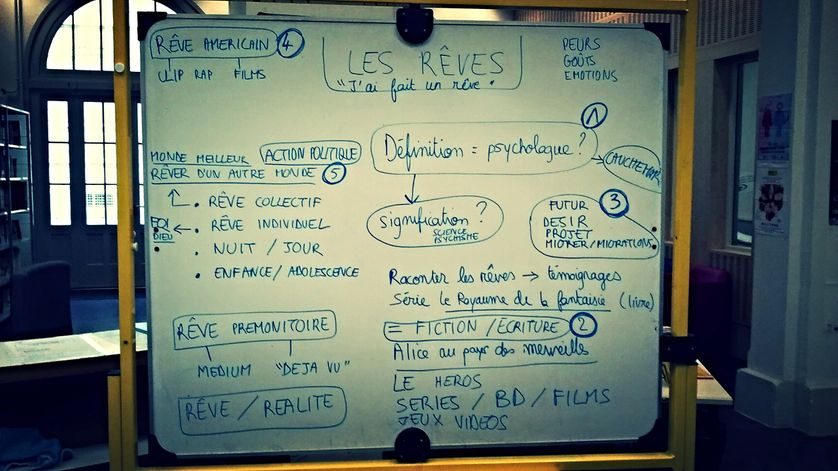 RÊVE AMERICAIN 4
CLIP RAP FILMS
LES RÊVES
"J'ai fait un rêve"
PEURS
GOÛTS
EMOTIONS
1
Définition = psychologue ?
CAUCHEMAR
signification ?
SCIENCE
PSYCHISME
MONDE MEILLEUR ACTION POLITIQUE
RÊVER D'UN AUTRE MONDE 5
. RÊVE COLLECTIF
FOI
DIEU
← . RÊVE INDIVIDUEL
. NUIT / JOUR
. ENFANCE / ADOLESCENCE
3
FUTUR
DESIR
PROJET
MIGRER/MIGRATIONS
Raconter les rêves → témoignages
Série le Royaume de la fantaisie (livre)
= FICTION / ÉCRITURE 2
Alice au pays des merveilles
LE HEROS
SERIES / BD / FILMS
JEUX VIDEOS
RÊVE PREMONITOIRE
MEDIUM "DEJA VU"
RÊVE / REALITE